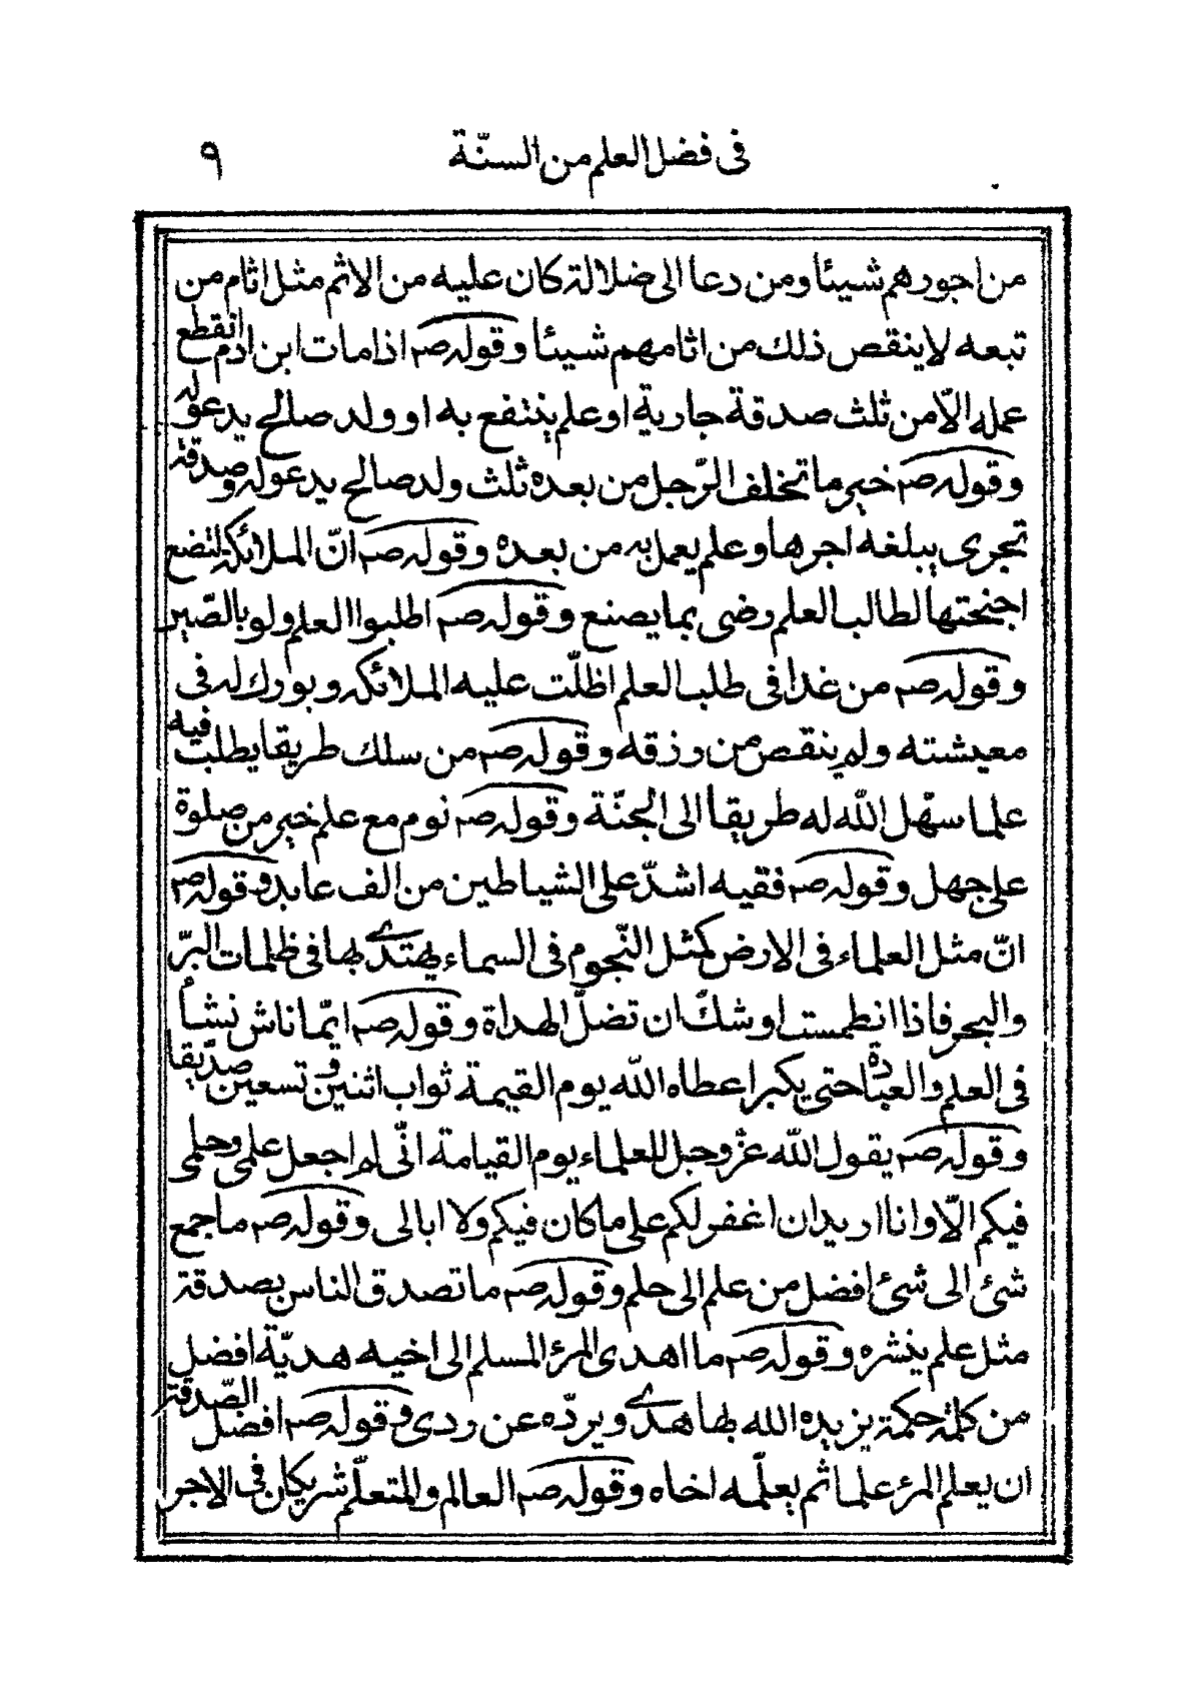 في فضل العلم من السنّة ٩
من اجورهم شيئا ومن دعا الى ضلالة كان عليه من الاثم مثل اثام من
تبعه لا ينقص ذلك من اثامهم شيئا وقوله صم اذا مات ابن ادم انقطع
عمله الّا من ثلث صدقة جارية او علم ينتفع به او ولد صالح يدعو له
وقوله صم خير ما تخلف الرّجل من بعده ثلث ولد صالح يدعو له وصدقة
تجرى يبلغه اجرها وعلم يعمل به من بعده وقوله صم انّ الملائكة لتضع
اجنحتها لطالب العلم رضى بما يصنع وقوله صم اطلبوا العلم ولو بالصّين
وقوله صم من غدا في طلب العلم اظلّت عليه الملائكة وبورك له في
معيشته ولم ينقص من رزقه وقوله صم من سلك طريقا يطلب فيه
علما سهّل الله له طريقا الى الجنّة وقوله صم نوم مع علم خير من صلوة
على جهل وقوله صم فقيه اشدّ على الشياطين من الف عابد وقوله صم
انّ مثل العلماء في الارض كمثل النّجوم في السماء يهتدى بها في ظلمات البرّ
والبحر فاذا انطمست اوشك ان تضلّ الهداة وقوله صم ايّما ناش نشأ
في العلم والعبادة حتى يكبر اعطاه الله يوم القيمة ثواب اثنين و تسعين صدّيقا
وقوله صم يقول الله عزّ وجل للعلماء يوم القيامة انّى لم اجعل علمى وحلمى
فيكم الّا وانا اريد ان اغفر لكم على ما كان فيكم ولا ابالى وقوله صم ما جمع
شئ الى شئ افضل من علم الى حلم وقوله صم ما تصدق الناس بصدقة
مثل علم ينشره وقوله صم ما اهدى المرئ المسلم الى اخيه هديّة افضل
من كلمة حكمة يزيده الله بها هدى ويردّه عن ردى وقوله صم افضل الصّدقة
ان يعلم المرئ علما ثم يعلّمه اخاه وقوله صم العالم والمتعلّم شريكان في الاجر